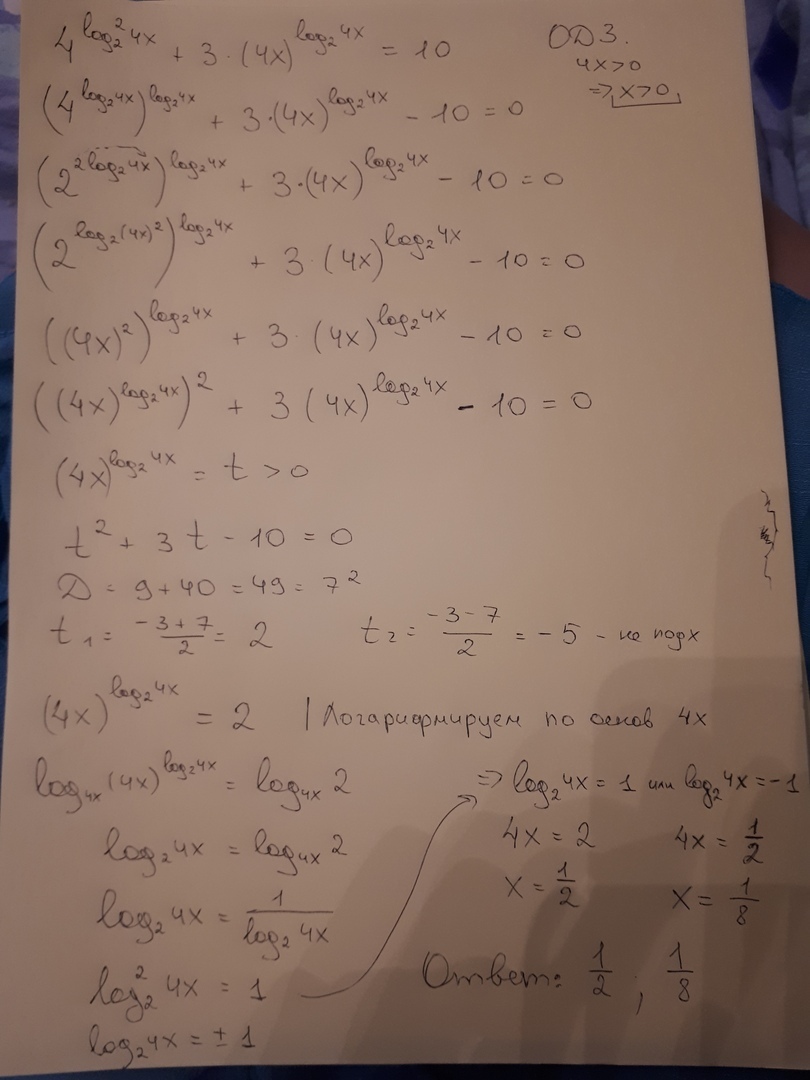 4^{log_2^2 4x} + 3·(4x)^{log_2 4x} = 10
ОДЗ.
4x>0
=> x>0
(4^{log_2 4x})^{log_2 4x} + 3·(4x)^{log_2 4x} - 10 = 0
(2^{2log_2 4x})^{log_2 4x} + 3·(4x)^{log_2 4x} - 10 = 0
(2^{log_2 (4x)^2})^{log_2 4x} + 3·(4x)^{log_2 4x} - 10 = 0
((4x)^2)^{log_2 4x} + 3·(4x)^{log_2 4x} - 10 = 0
((4x)^{log_2 4x})^2 + 3(4x)^{log_2 4x} - 10 = 0
(4x)^{log_2 4x} = t > 0
t^2 + 3t - 10 = 0
D = 9+40 = 49 = 7^2
t_1 = \frac{-3+7}{2} = 2   t_2 = \frac{-3-7}{2} = -5 - не подх
(4x)^{log_2 4x} = 2 | Логарифмируем по основ 4x
log_{4x} (4x)^{log_2 4x} = log_{4x} 2
log_2 4x = log_{4x} 2
log_2 4x = \frac{1}{log_2 4x}
log_2^2 4x = 1
log_2 4x = ± 1
=> log_2 4x = 1 или log_2 4x = -1
4x = 2   4x = \frac{1}{2}
x = \frac{1}{2}   x = \frac{1}{8}
Ответ: \frac{1}{2} ; \frac{1}{8}